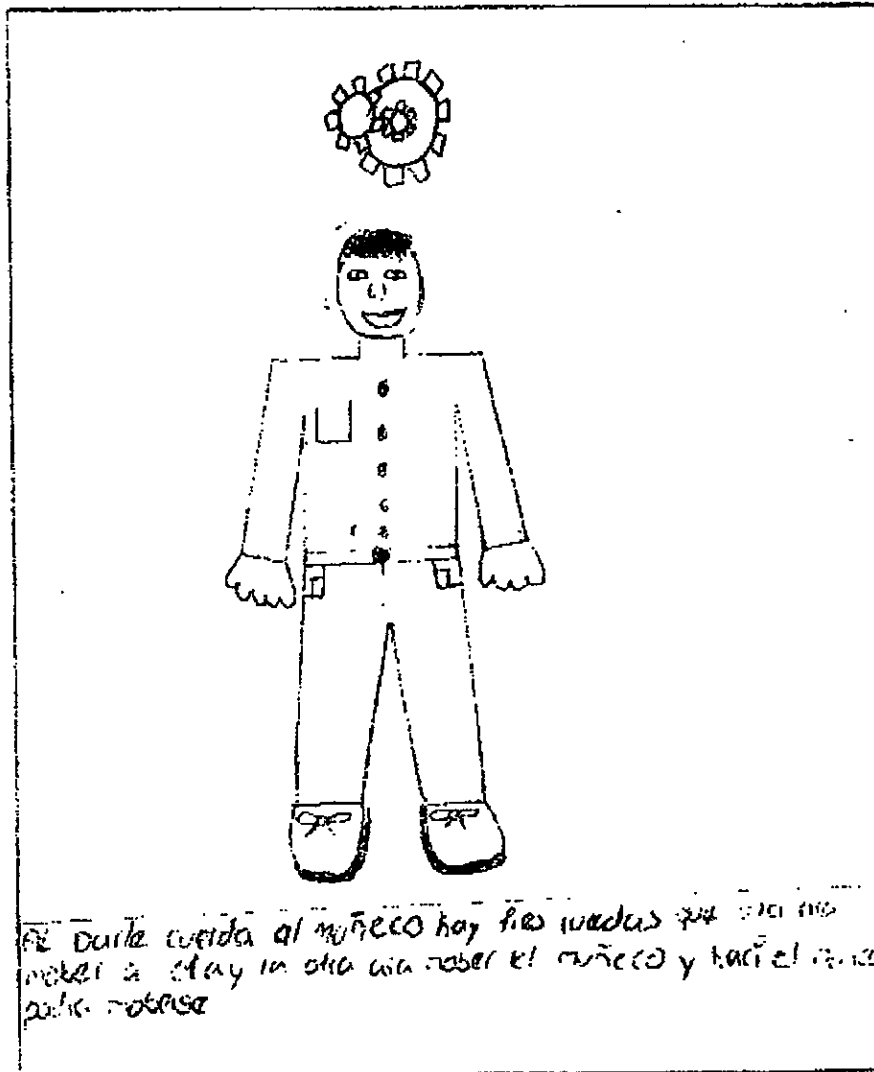 Al Darle cuerda al muñeco hay tres ruedas que una
mober a otra y la otra ara mober el muñeco y haci el
podra moberse